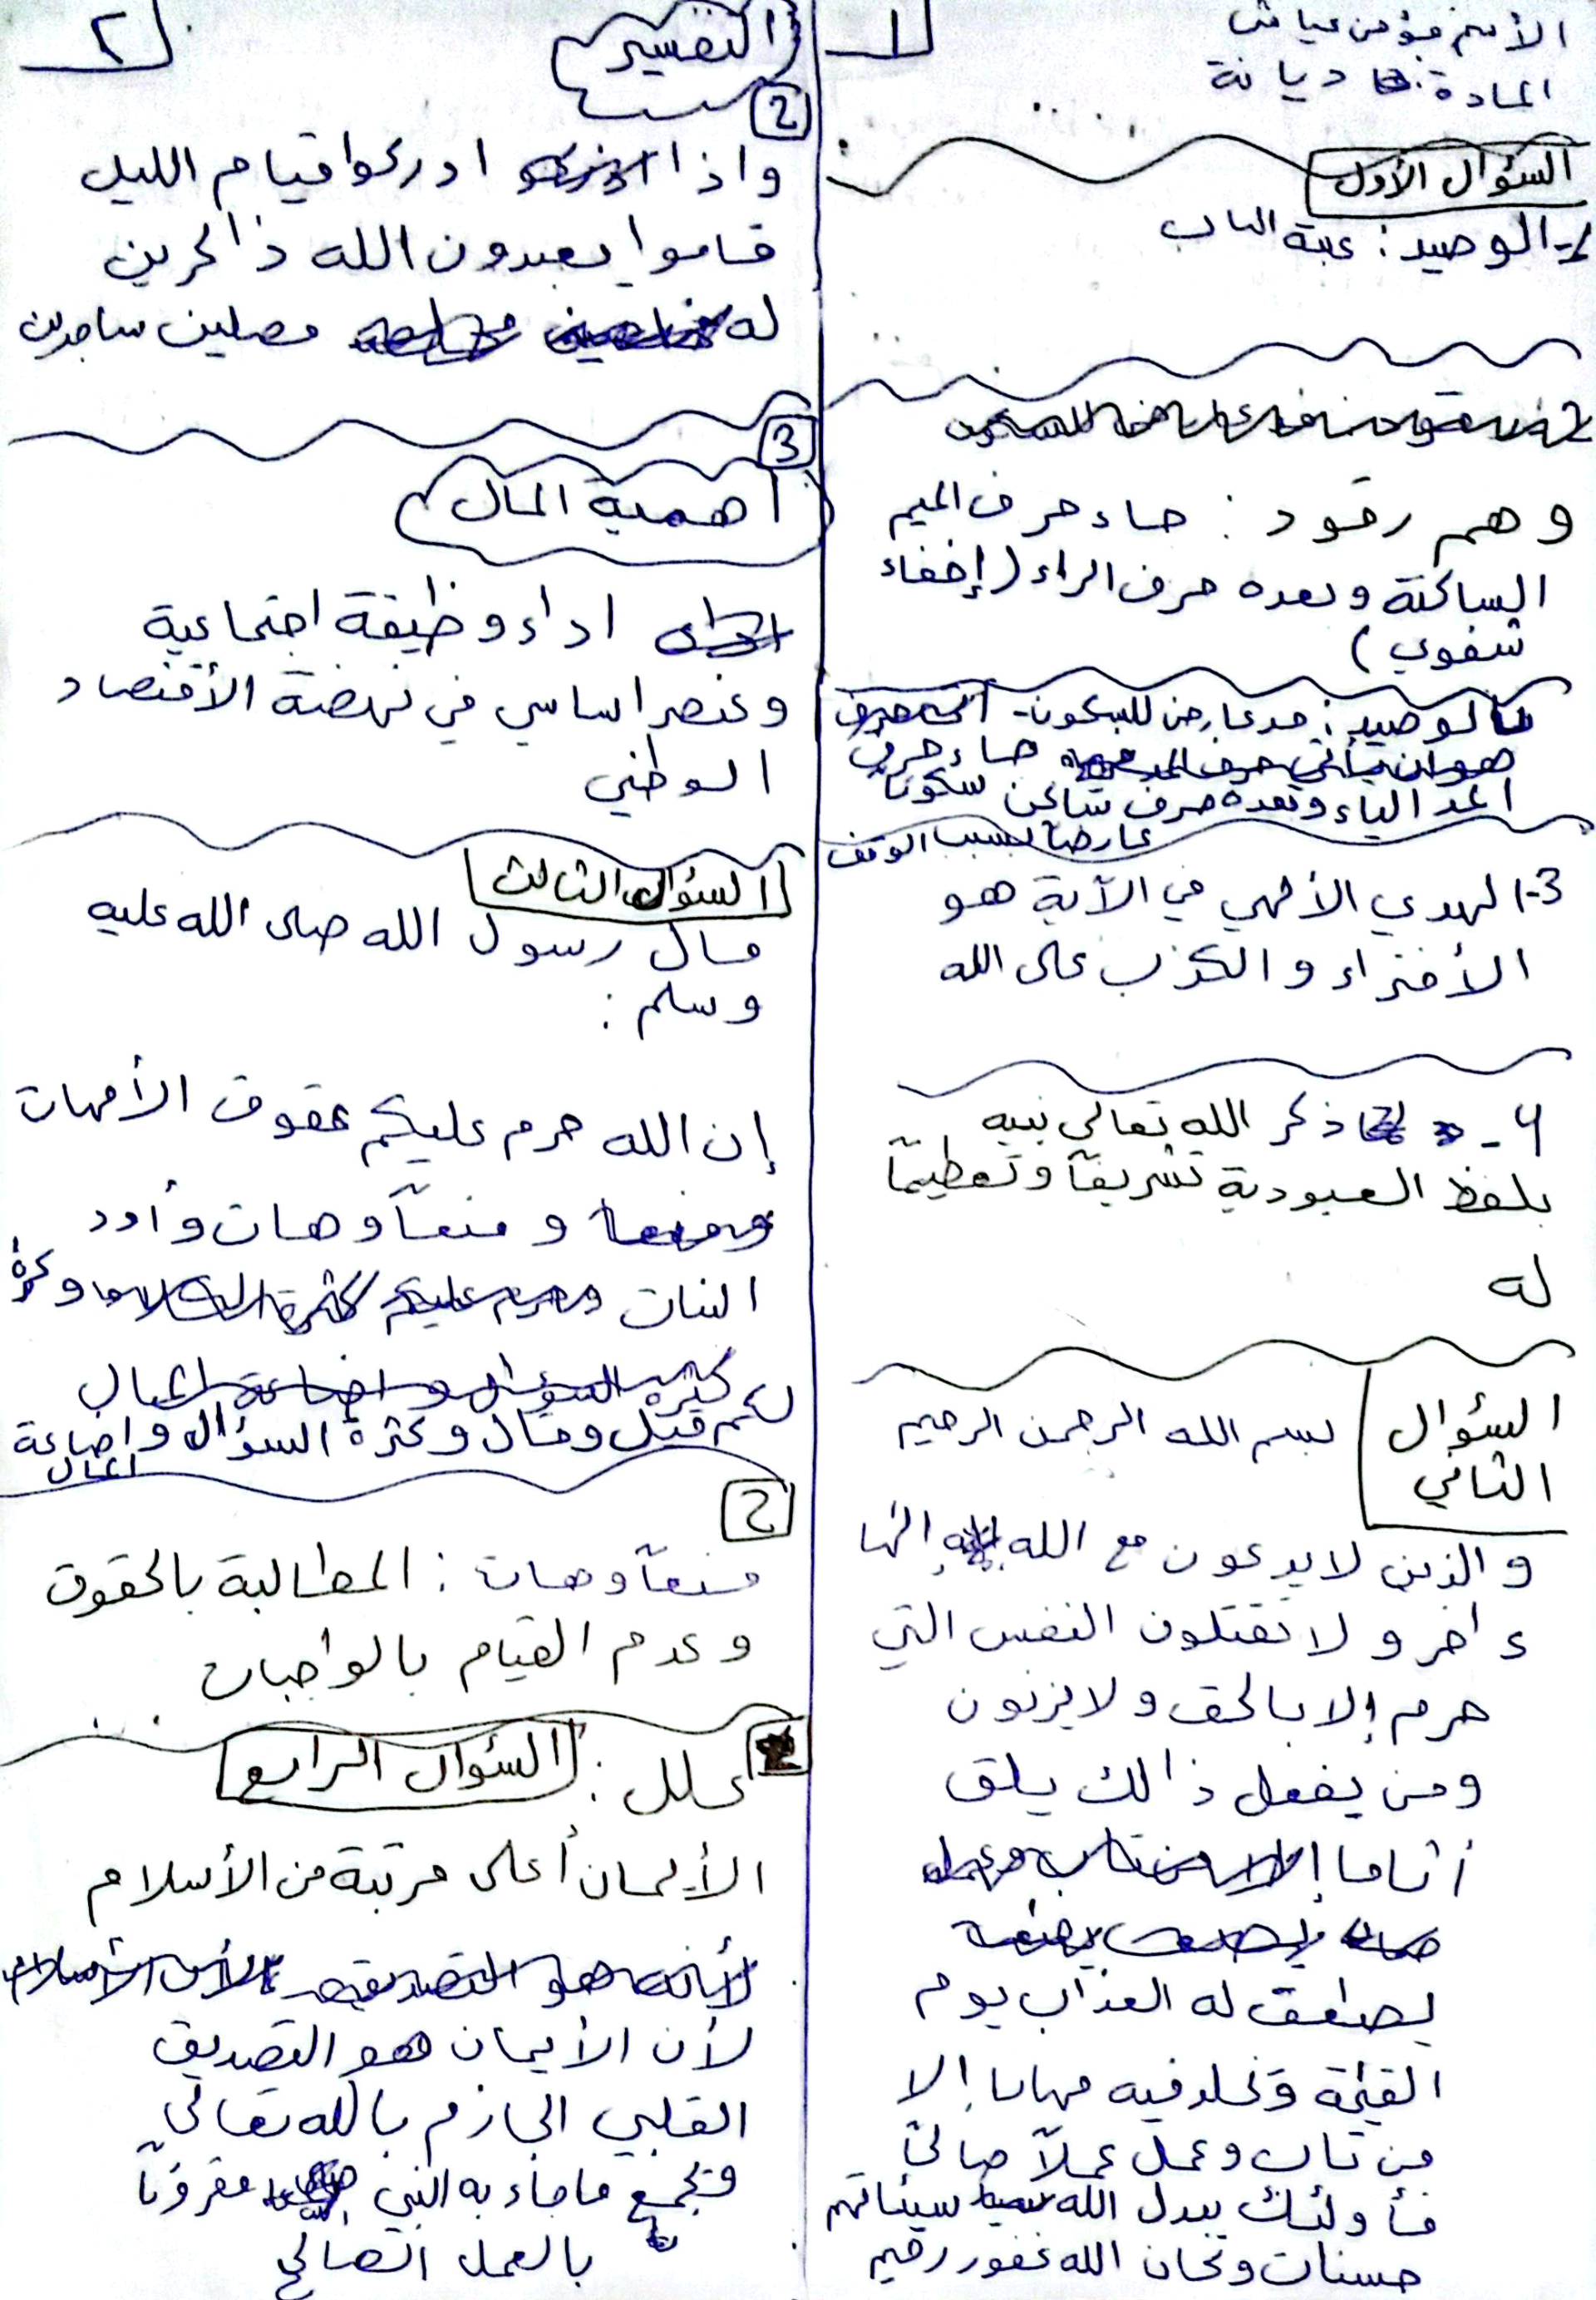 ١
الأسم مؤمن عياش
المادة: ديانة
السؤال الأول
1- الوصيد: عتبة الباب
وهم رقود: جاء حرف الميم
الساكنة وبعده حرف الراء (إخفاء
شفوي)
الوصيد: مد عارض للسكون -
جاء حرف
المد الياء وبعده حرف ساكن سكونا
عارضا بسبب الوقف
3- الهدي الألهي في الآية هو
الأفتراء والكذب على الله
4- ذكر الله تعالى نبيه
بلفظ العبودية تشريفاً وتعظيماً
له
السؤال الثاني
بسم الله الرحمن الرحيم
والذين لا يدعون مع الله إلها
ءاخر ولا تقتلون النفس التي
حرم إلا بالحق ولا يزنون
ومن يفعل ذالك يلق
أثاما
يضعف له العذاب يوم
القيمة ويخلد فيه مهانا إلا
من تاب وعمل عملاً صالحاً
فأولئك يبدل الله سيئاتهم
حسنات وكان الله غفور رحيم
٢
التفسير
2
واذا ادركوا قيام الليل
قاموا يعبدون الله ذاكرين
له مصلين ساجدين
3
أهمية المال
اداء وظيفة اجتماعية
وعنصر اساسي في نهضة الأقتصاد
الوطني
السؤال الثالث
قال رسول الله صلى الله عليه
وسلم:
إن الله حرم عليكم عقوق الأمهات
ومنعاً وهات وأود
البنات وكره
لكم قيل وقال وكثرة السؤال واضاعة
المال
2
منعاً وهات: المطالبة بالحقوق
وعدم القيام بالواجبات
السؤال الرابع
علل:
الأيمان أعلى مرتبة من الأسلام
لأن الأيمان هو التصديق
القلبي الجازم بالله تعالى
وبجميع ما جاء به النبي مقروناً
بالعمل الصالح